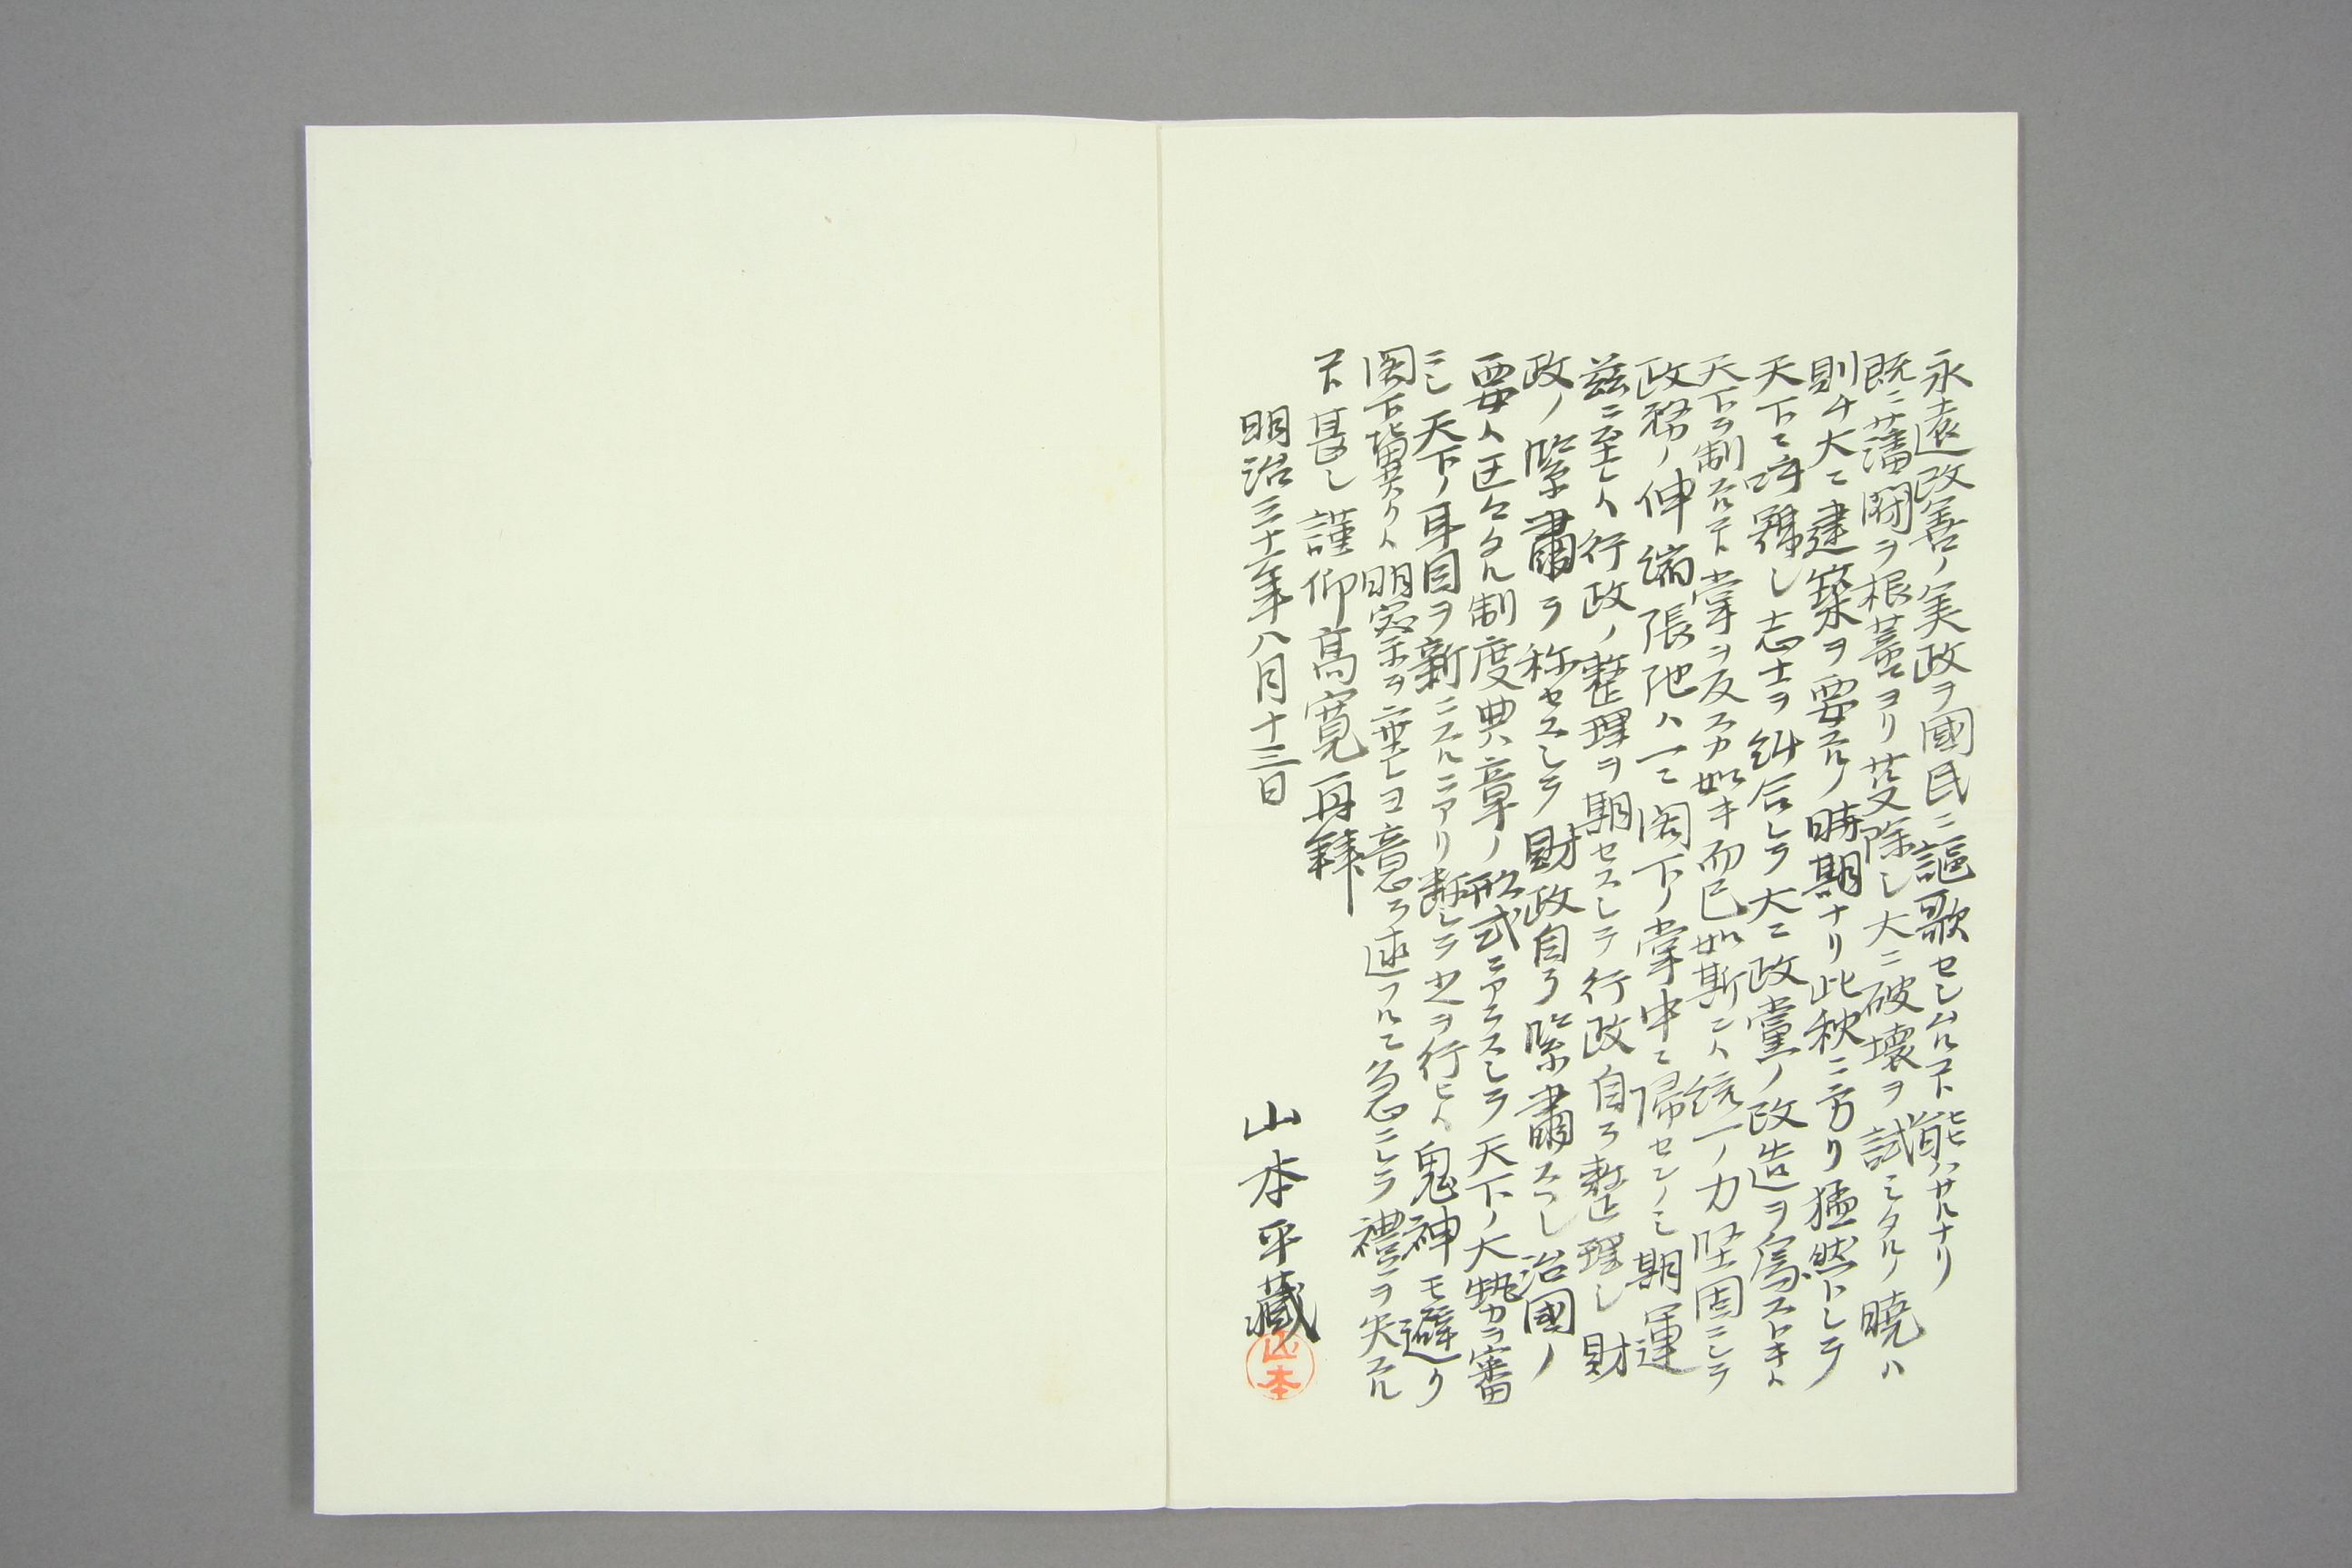 永遠改善ノ実政ヲ國民ニ謳歌セシムルヿ能ハサルナリ
既ニ藩閥ヲ根蔕ヨリ芟除シ大ニ破壊ヲ試ミタルノ曉ハ
則チ大ニ建築ヲ要スルノ時期ナリ此秋ニ方リ猛然トシテ
天下ニ呼號シ志士ヲ糾合シテ大ニ政黨ノ改造ヲ為ストキハ
天下ヲ制スルヿ掌ヲ反スカ如キ而已如斯ニハ統一ノ力堅固ニシテ
政務ノ伸縮張弛ハ一ニ閣下ノ掌中ニ帰センノミ期運
茲ニ至レハ行政ノ整理ヲ期セスシテ行政自ラ整理シ財
政ノ緊肅ヲ称セスシテ財政自ラ緊肅スヘシ治國ノ
要ハ区々タル制度典章ノ形式ニアラスシテ天下ノ大勢ヲ審
ニシ天下ノ耳目ヲ新ニスルニアリ断シテ之ヲ行ヒハ鬼神モ避ク
閣下冀クハ明察ヲ垂レヨ意ヲ述フルニ急ニシテ禮ヲ失スル
ヿ甚シ謹仰高寛再拜
明治三十一年八月十三日
山本平藏
山本